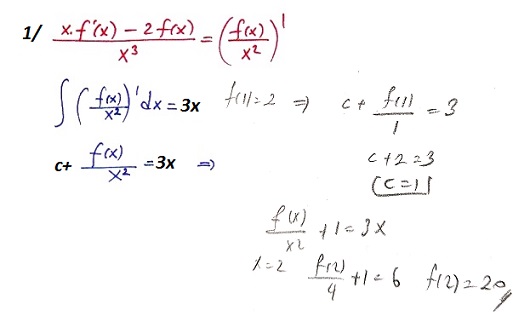 1/ x.f'(x) - 2f(x) / x³ = (f(x) / x²)'
∫ (f(x) / x²)' dx = 3x f(1) = 2 ⇒ c + f(1) / 1 = 3
c+ f(x) / x² =3x ⇒ c + 2 = 3
c = 1
f(x) / x² + 1 = 3x
x = 2 f(2) / 4 + 1 = 6 f(2) = 20